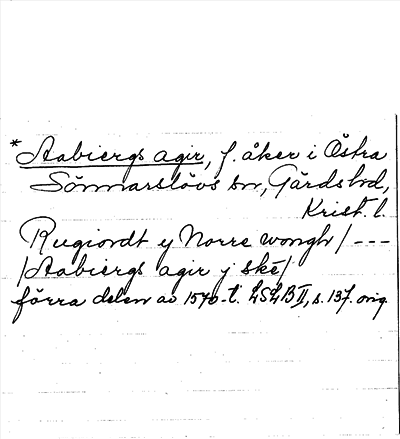 *Aabiergs agir, f. åker i Östra
Sönnarslövs sn, Gärds hd,
Krist. l.
Rugiordt y Norre wongh / ---
/ Aabiergs agir j ské /
förra delen av 1570-t. LSLB II, s. 137. orig.